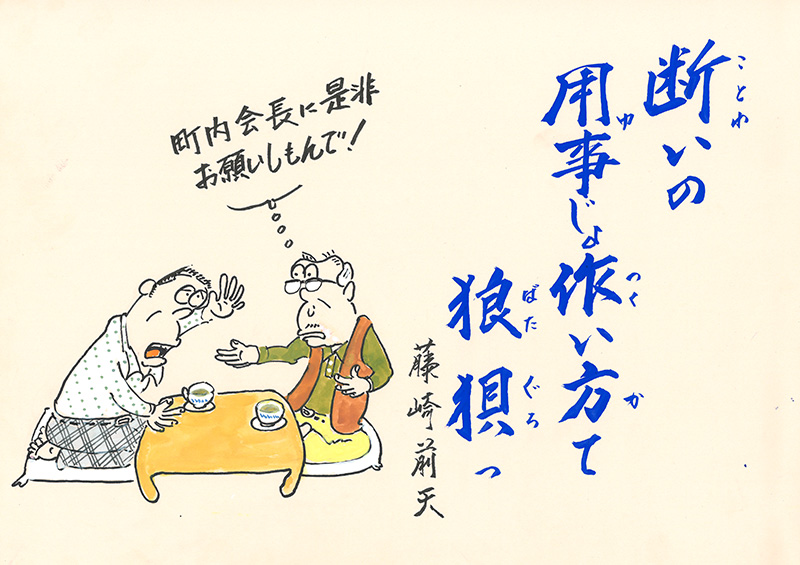 断いの
用事じょ作い方て
狼狽っ
ことわ
ゆ
つく
か
ばた
ぐろ
藤崎前天
町内会長に是非
お願いしもんで!